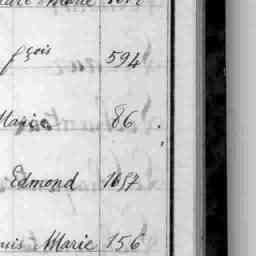 Marie
fçois 594
Marie 86.
Edmond 1657
uis Marie 156